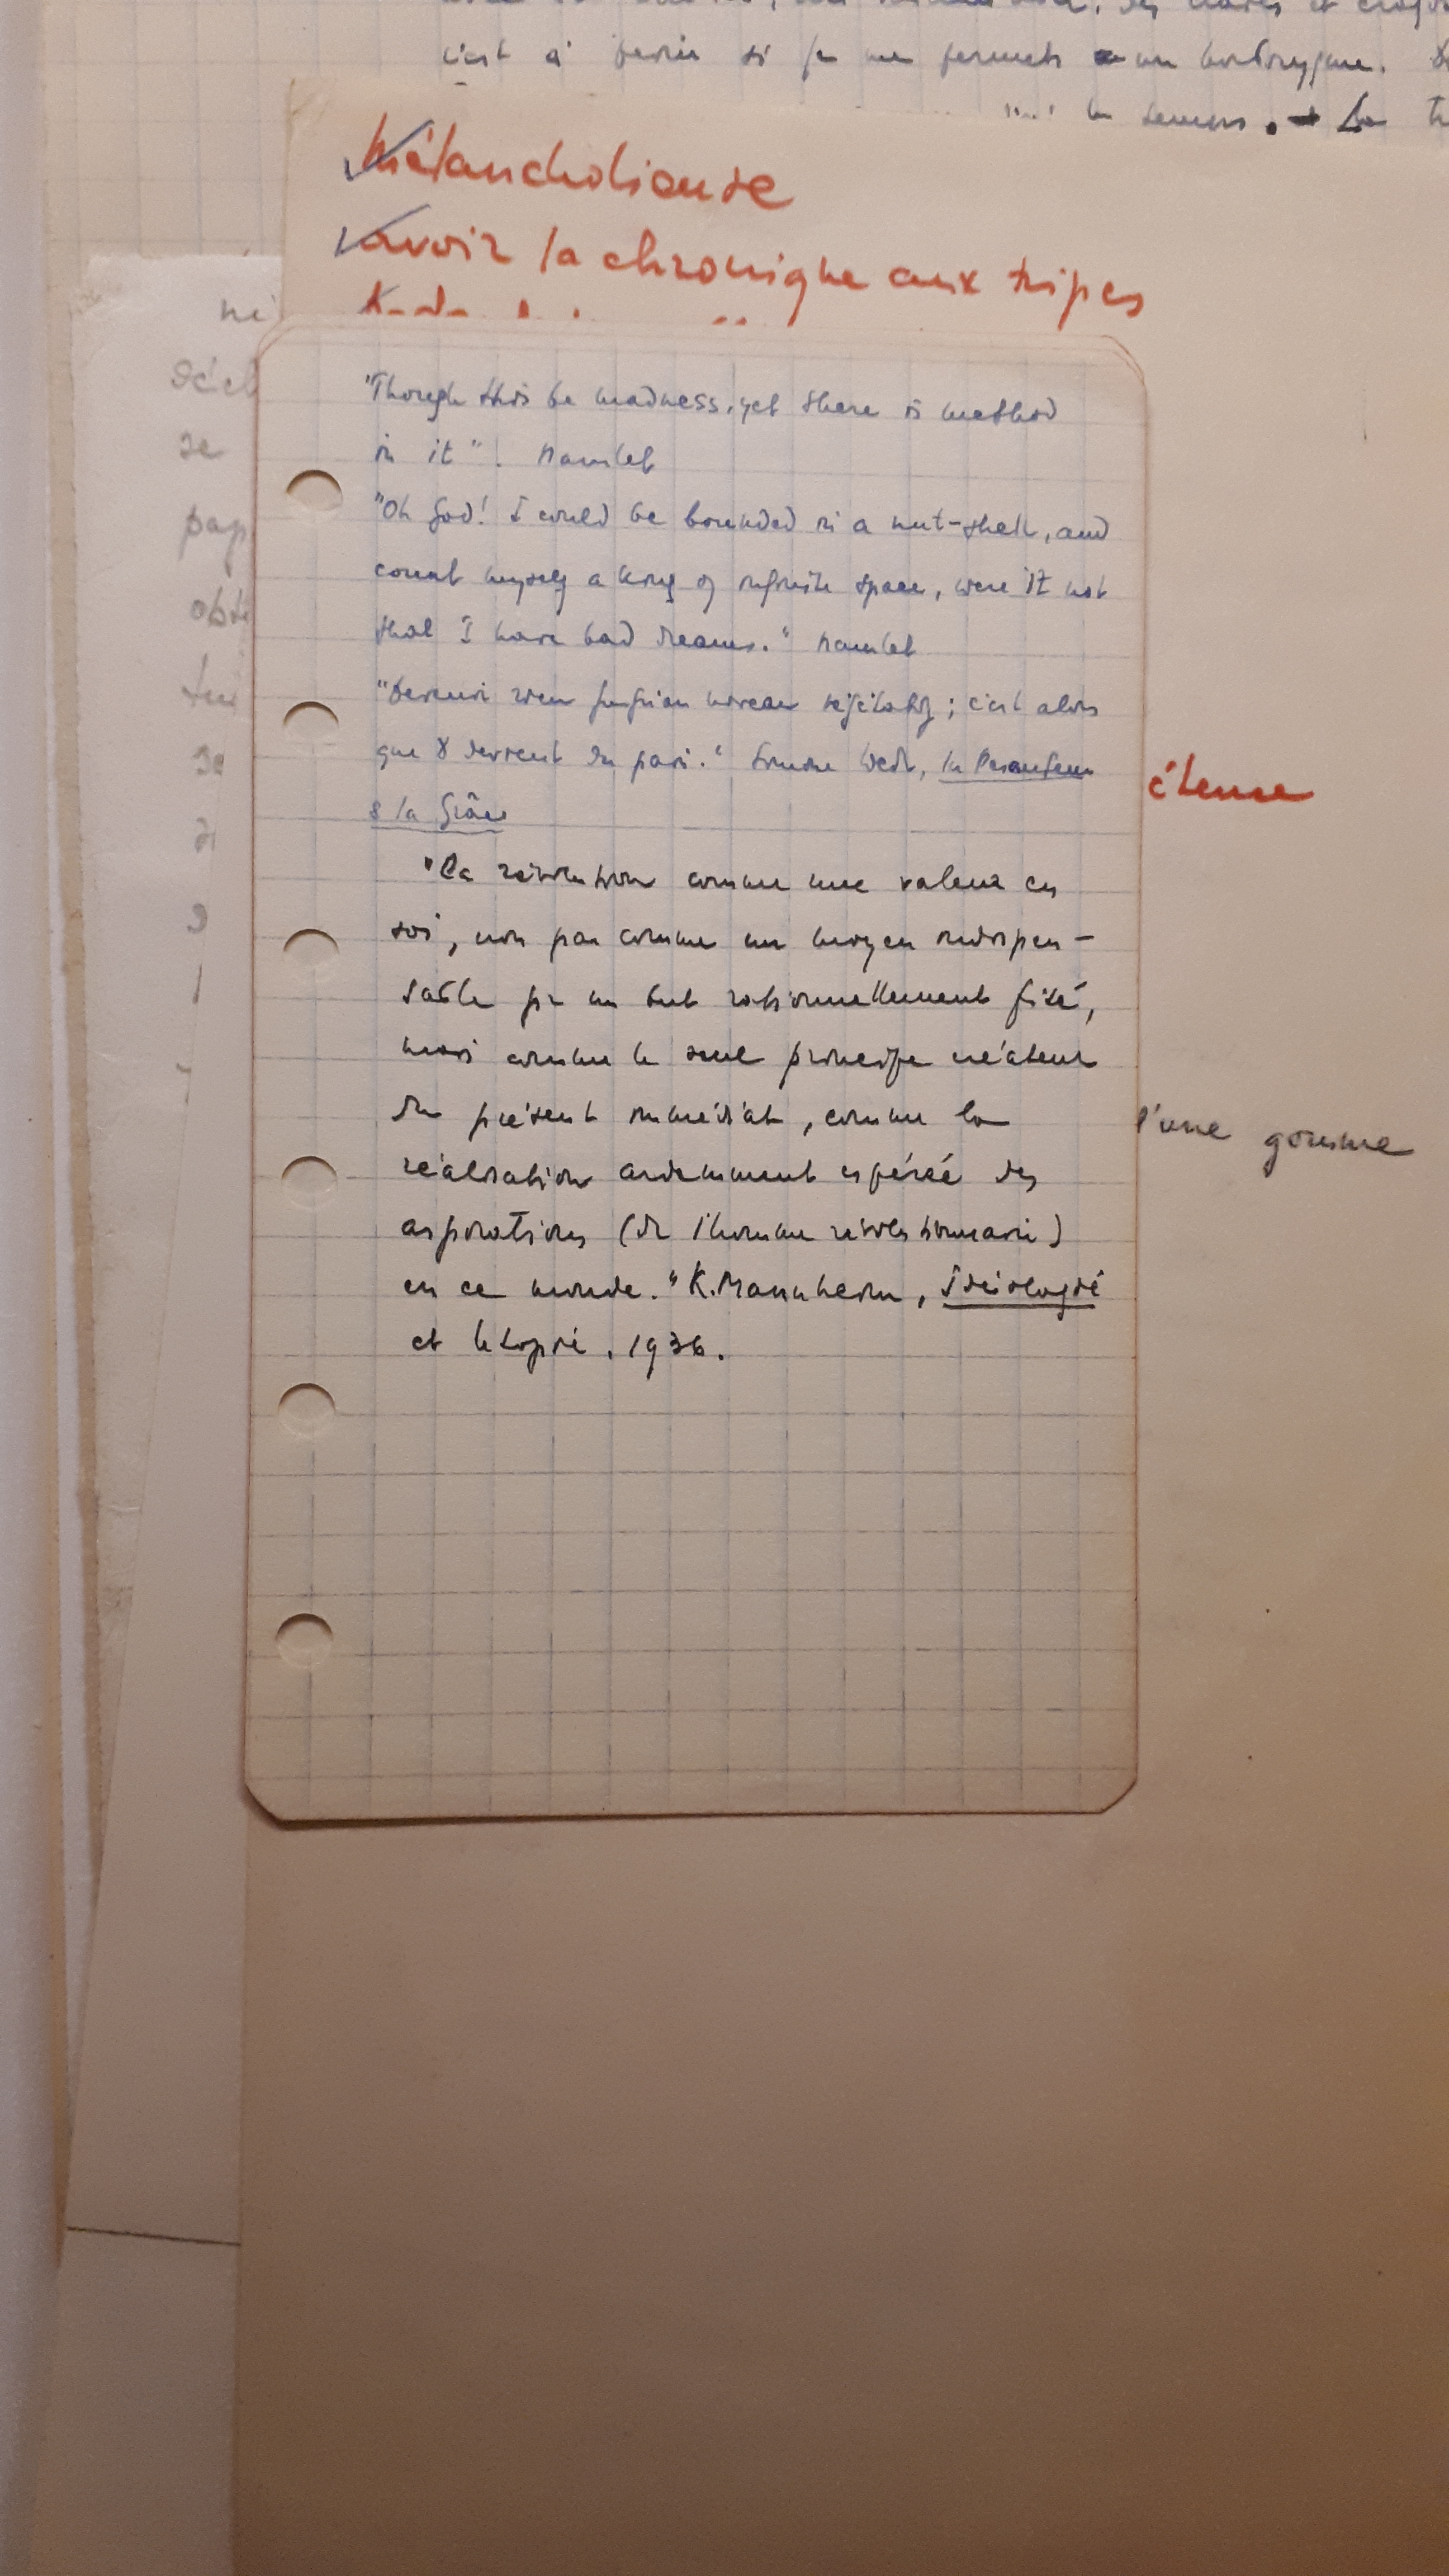 c'est à si je me permets un borborygme.
Mélancholieuse
avoir la chronique aux tripes
ni
se
pap
obte
se
"Though this be madness, yet there is method
in it". Hamlet
"Oh God! I could be bounded in a nut-shell, and
count myself a king of infinite space, were it not
that I have bad dreams." Hamlet
"Devenir rien jusqu'au niveau végétatif; c'est alors
que Dieu devient du pain." Simone Weil, la Pesanteur
& la Grâce
éteuse
"La révolution comme une valeur en
soi, non pas comme un moyen indispen-
sable pr un but rationnellement fixé,
mais comme le seul principe créateur
du présent immédiat, comme la
l'une gomme
réalisation ardemment espérée des
aspirations (de l'homme révolutionnaire)
en ce monde." K. Mannheim, Idéologie
et Utopie. 1936.